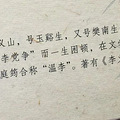 义山,号玉谿生,又号樊南生
李党争”而一生困顿,在文
庭筠合称“温李”。著有《李